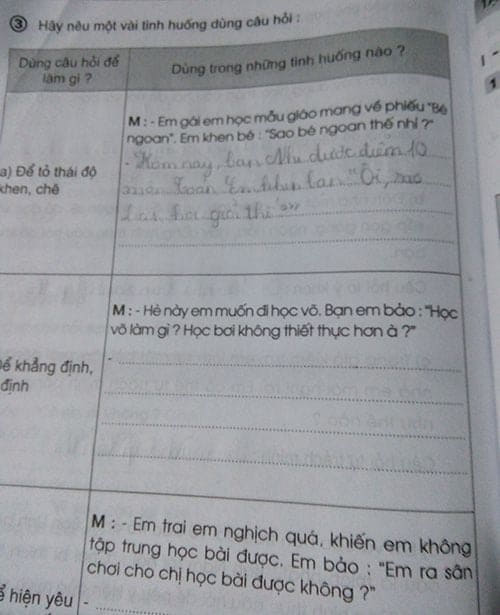 ③ Hãy nêu một vài tình huống dùng câu hỏi :
Dùng câu hỏi để
làm gì ?
Dùng trong những tình huống nào ?
a) Để tỏ thái độ
khen, chê
M : - Em gái em học mẫu giáo mang về phiếu "Bé
ngoan". Em khen bé : "Sao bé ngoan thế nhỉ ?"
- Hôm nay, bạn Như được điểm 10
môn Toán. Em khen bạn "Ôi, sao
bạn học giỏi thế
Để khẳng định,
định
M : - Hè này em muốn đi học võ. Bạn em bảo : "Học
võ làm gì ? Học bơi không thiết thực hơn à ?"
-
ể hiện yêu
M : - Em trai em nghịch quá, khiến em không
tập trung học bài được. Em bảo : "Em ra sân
chơi cho chị học bài được không ?"
-
1